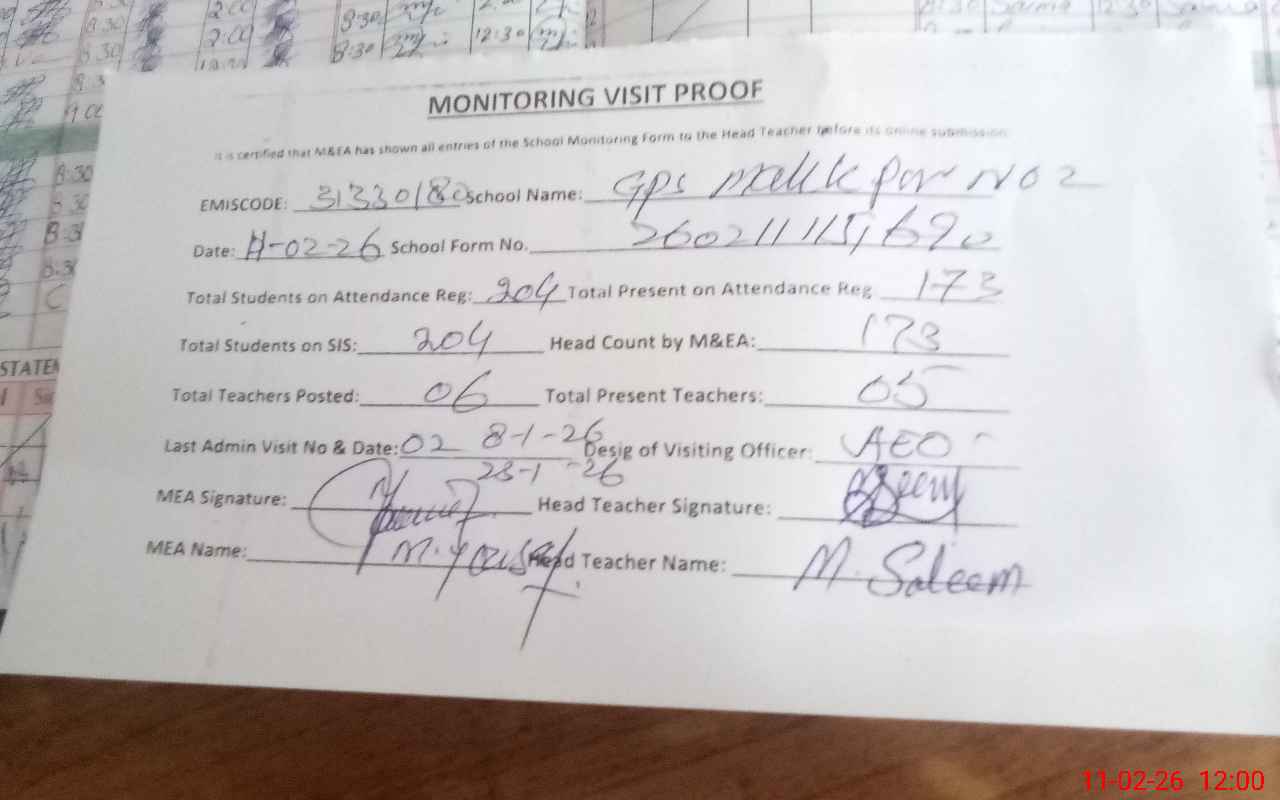 8:30 2:00 8:30 12:30
MONITORING VISIT PROOF
It is certified that M&EA has shown all entries of the School Monitoring Form to the Head Teacher before its online submission.
EMISCODE: 31330180 School Name: GPS Malik Pur NO 2
Date: 11-02-26 School Form No. 260211115690
Total Students on Attendance Reg: 204 Total Present on Attendance Reg 173
Total Students on SIS: 204 Head Count by M&EA: 173
Total Teachers Posted: 06 Total Present Teachers: 05
Last Admin Visit No & Date: 02 8-1-26 Desig of Visiting Officer: AEO
28-1-26
MEA Signature: Head Teacher Signature: Saleem
MEA Name: M. Yousaf Head Teacher Name: M. Saleem
STATEM
11-02-26 12:00